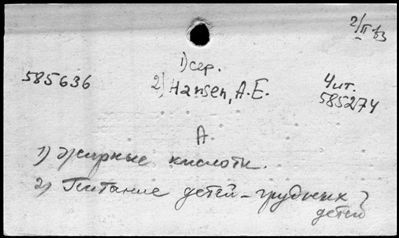 2/II 63
1) сер.
585636 2) Hansen, A.E. Чит. 585274
А
1) Жирные кислоты.
2) Питание детей - грудных
детей